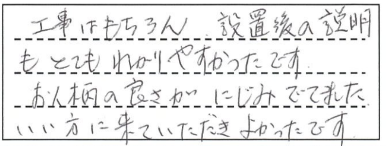 工事はもちろん、設置後の説明
もとてもわかりやすかったです
お人柄の良さがにじみでてました
いい方に来ていただきよかったです